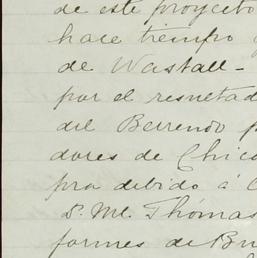 de este proyecto
hace tiempo
de Wastall-
por el resuetad
del Berrendo p
dores de Chic
pra debido á C
D. M. Thomas
formes de Bu